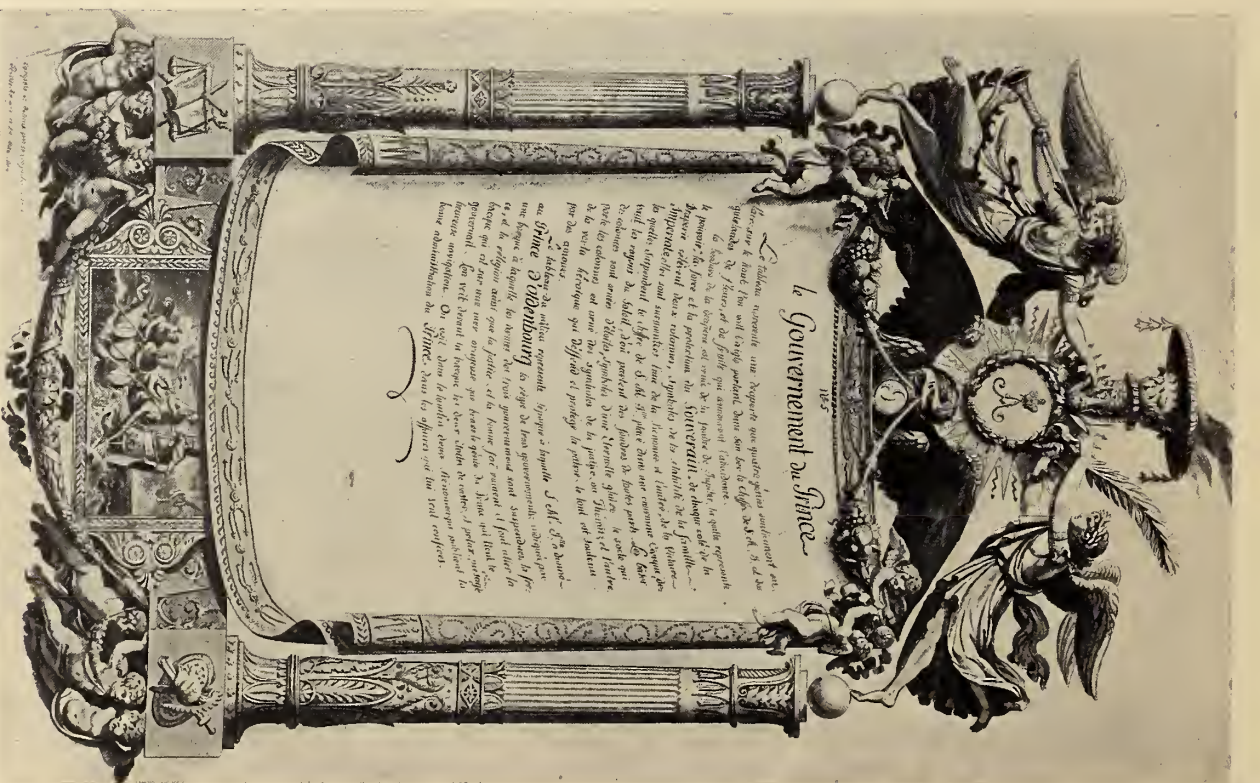 1765
le Gouvernement du Prince
Le tableau represente une draperie que quatre génies soutiennent en
l'air, sur le haut l'on voit l'aigle portant dans son bec le chiffre de S. A. I. et des
guirlandes de fleurs, et de fruits qui annoncent l'abondance.
la bordure de la draperie est ornée de la foudre de Jupiter, la quelle represente
le pouvoir, la force et la protection du Souverain de chaque coté de la
draperie s'élévent deux colonnes, symboles de la stabilité de la famille
Imperiale, elles sont surmontées l'une de la Renomée et l'autre de la Victoire
la quelles suspendent le chiffre de S. M. I. placé dans une couronne Civique, des
rayons du Soleil d'où partent des foudres de toutes parts. La base
des colonnes sont ornées d'étoiles, symboles d'une Eternelle gloire. le socle qui
porte les colonnes est orné des symboles de la justice, ou Thémis, et l'autre
de la vertu héroique qui deffend et protège la patrie. le tout est soutenu
par des genies.
Le tableau du milieu represente l'époque à laquelle S. M. I. a donné
au Prince d'Oldenbourg la régie de trois gouvernements, indiqués par
une barque à laquelle les armes des trois gouvernements sont suspendues, la for-
ce, et la réligion ainsi que la justice, et la bonne foi rament et font aller la
barque qui est sur une mer orageuse au travers le génie du Prince qui tient le
gouvernail. L'on voit devant la barque les deux
heureuse navigation. On voit dans le lointain deux Renommées qui publient la
bonne administration du Prince, dans les affaires qui lui sont confiées.